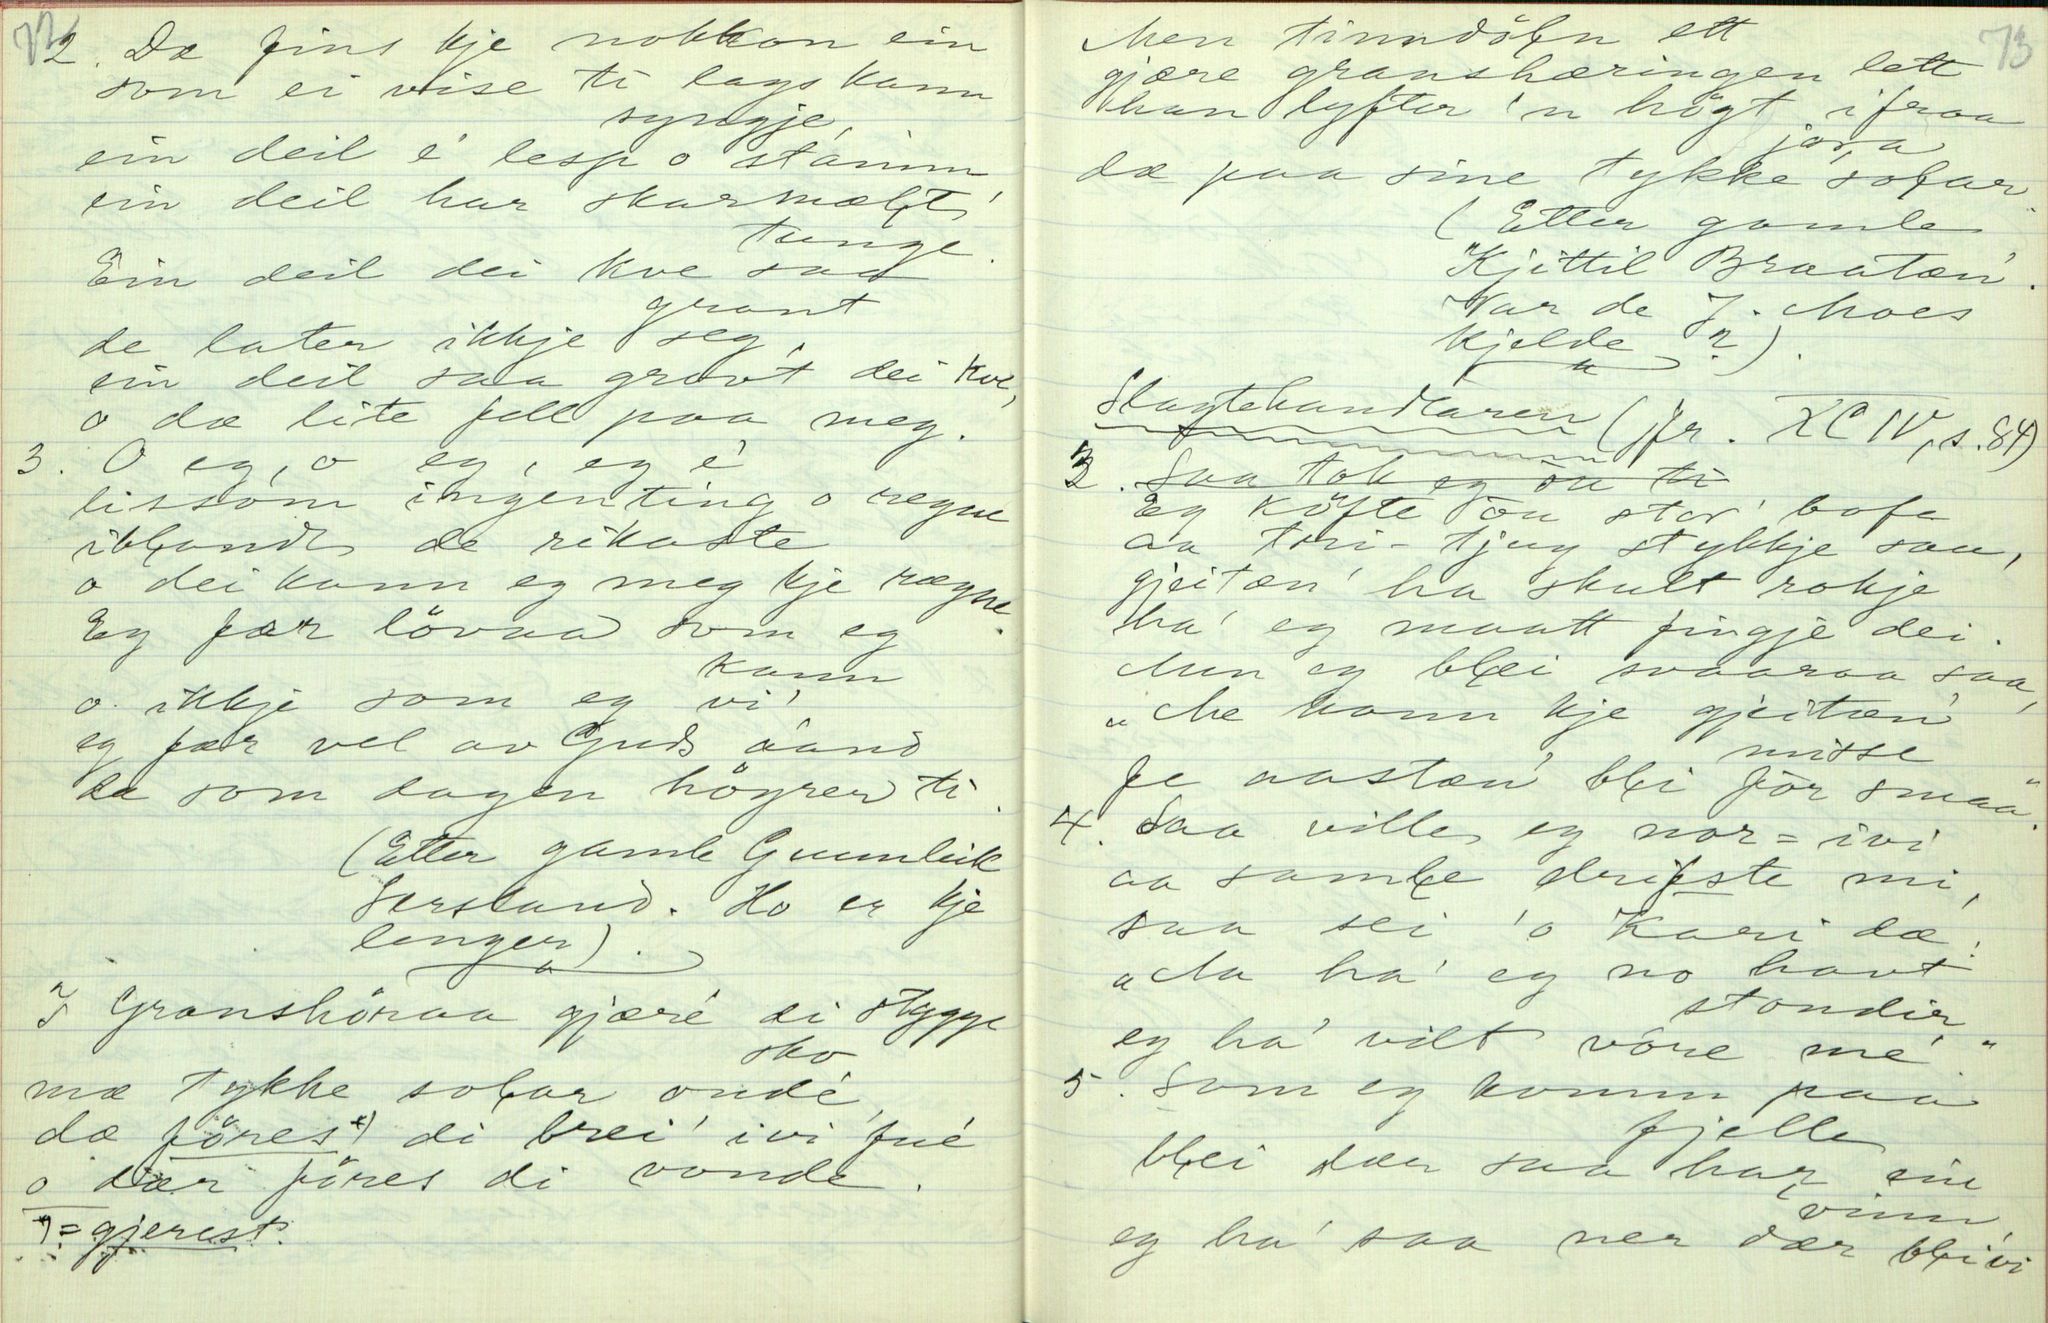 72
2. Dæ fins kje nokkon ein
som ei vise ti lags kann
syngje,
ein deil é lesp o stamm
ein deil har skarmælt'
tunge.
Ein deil dei kve saa
grant
de later ikkje seg,
ein deil saa grovt dei kve,
o dæ lite fell paa meg.
3. O eg, o eg, eg é
lissom ingenting o regne
iblandt de rikaste
o dei kann eg meg kje rægne.
Eg fær lövaa som eg
kann
o ikkje som eg vi'
eg fær vel av Guds aand
dæ som dagen högrer ti.
(Etter gamle Gunnleik
Sersland. Ho er kje
lenger).
I Granshöraa gjære di stygge
sko
mæ tykke solar onde,
dæ föres*) di brei' ivi fué
o dær föres di vonde.
*) = gjerest.
73
Men tinndöln ett
gjære granshæringen lett
han lyfter 'n högt ifraa
jora
dæ paa sine tykke solar.
(Etter gamle
Kjittil Braaten'.
Var de J. Moes
kjelde?).
Slagtehandlaren (jfr. XCIV, s. 84)
3. Saa tok eg öu ti
Eg köfte öu stor' bofe
aa tri-tjug stykkje sau,
gjeitæn' ha skult rokje
ha' eg maatt fingje dei.
Men eg blei svaaraa saa,
"Me kann kje gjeitæn'
misse
fe aastæn' blei för smaa".
4. Saa ville eg nor=ivi
aa samle drifste mi,
saa sei 'o Kari dæ:
"Ma ha' eg no havt
stondir
eg ha' vilt vöre me'"
5. Som eg komm paa
fjelle
blei dær saa har ein
vinn,
eg ha' saa ner dær bleivi